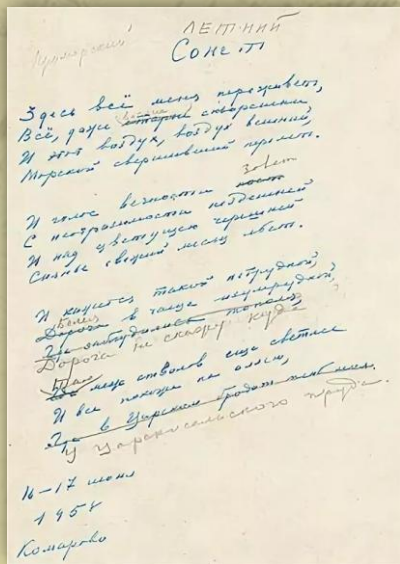 ЛЕТНИЙ
Приморский
Сонет
Здесь всё меня переживет,
ветхие
Всё, даже старые скворешни
И этот воздух, воздух вешний,
Морской свершивший перелет.
зовет
И голос вечности
С неотразимостью нездешней
И над цветущею черешней
Сиянье свежий месяц льет.
И кажется такой нетрудной,
Белея
Дорога в чаще изумрудной,
Дорога не скажу куда
Там
меж стволов еще светлее
И все похоже на аллею,
Где в Царском бродит
У царскосельского пруда.
16–17 июня
1958
Комарово